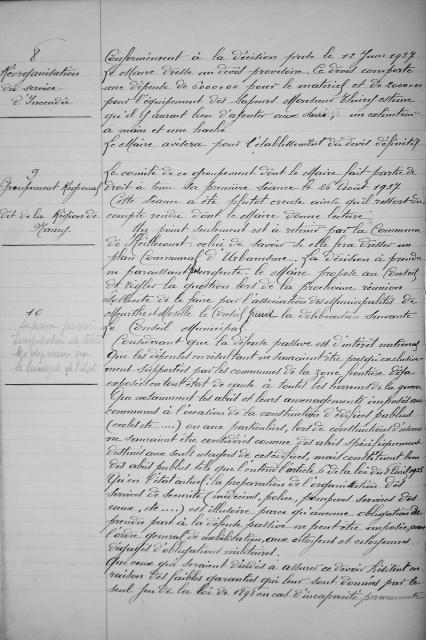 8
Réorganisation
du service
d'Incendie
Conformément à la décision prise le 12 Juin 1937
Le Maire dresse un devis provisoire. Ce devis comporte
une dépense de 6000.00 pour le matériel et de 2000.00
pour l'équipement des Sapeurs. Monsieur Thierry estime
qu'il y aurait lieu d'ajouter aux un extincteur
à main et une hache
Le Maire avisera pour l'établissement du devis définitif
9
Groupement Régional
dit de la Région de
Nancy
Le comité de ce groupement dont le Maire fait partie de
droit a tenu sa première séance le 26 Août 1937.
Cette séance a été plutôt creuse ainsi qu'il ressort du
compte rendu dont le Maire donne lecture.
Un point seulement est à retenir par la Commune
de Heillecourt celui de savoir si elle fera dresser un
plan Communal d'Urbanisme. La décision à prendre
ne paraissant pas urgente, le Maire propose au Conseil
de régler la question lors de la prochaine réunion
10
de le faire par l'association des Municipalités de
Meurthe & Moselle le Conseil prend la délibération suivante
Le Conseil Municipal
Considérant que la défense passive est d'intérêt national
Que les dépenses en résultant ne sauraient être presqu'exclusive-
ment supportées par les communes de la zone frontière déjà
exposées en tout état de cause à toutes les horreurs de la guerre
Que notamment les abris et leurs aménagements imposés aux
communes à l'occasion de la construction d'édifices publics
(écoles etc ....) ou aux particuliers, lors de constructions
ne sauraient être considérés comme des abris spécifiquement
destinés aux seuls usagers de ces édifices, mais constituent bien
des abris publics tels que l'entend l'article 6 de la loi du 8 Avril 1935
Qu'en l'état actuel, la préparation de l'organisation des
services de sécurité (médecins, police, pompiers, services des
eaux, etc ....) est illusoire parce qu'aucune obligation de
prendre part à la défense passive ne peut être imposée, avant
l'ordre général de mobilisation, aux citoyens et citoyennes
dégagés d'obligations militaires.
Que ceux qui seraient décidés à assurer ce devoir hésitent en
raison des faibles garanties qui leur sont données par le
seul jeu de la loi de 1898 en cas d'incapacité permanente